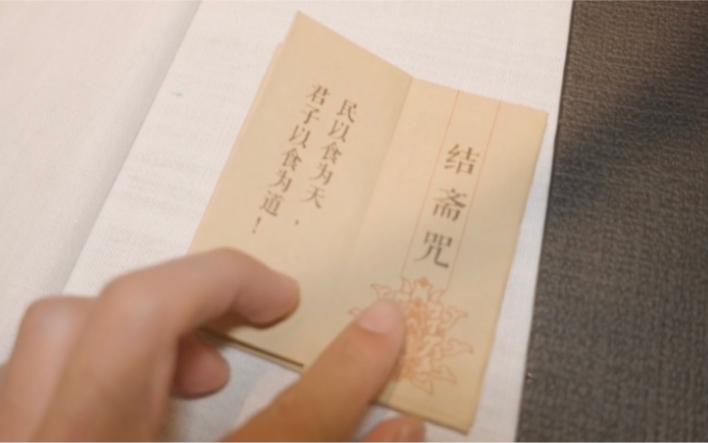 结斋咒
民以食为天，
君子以食为道！